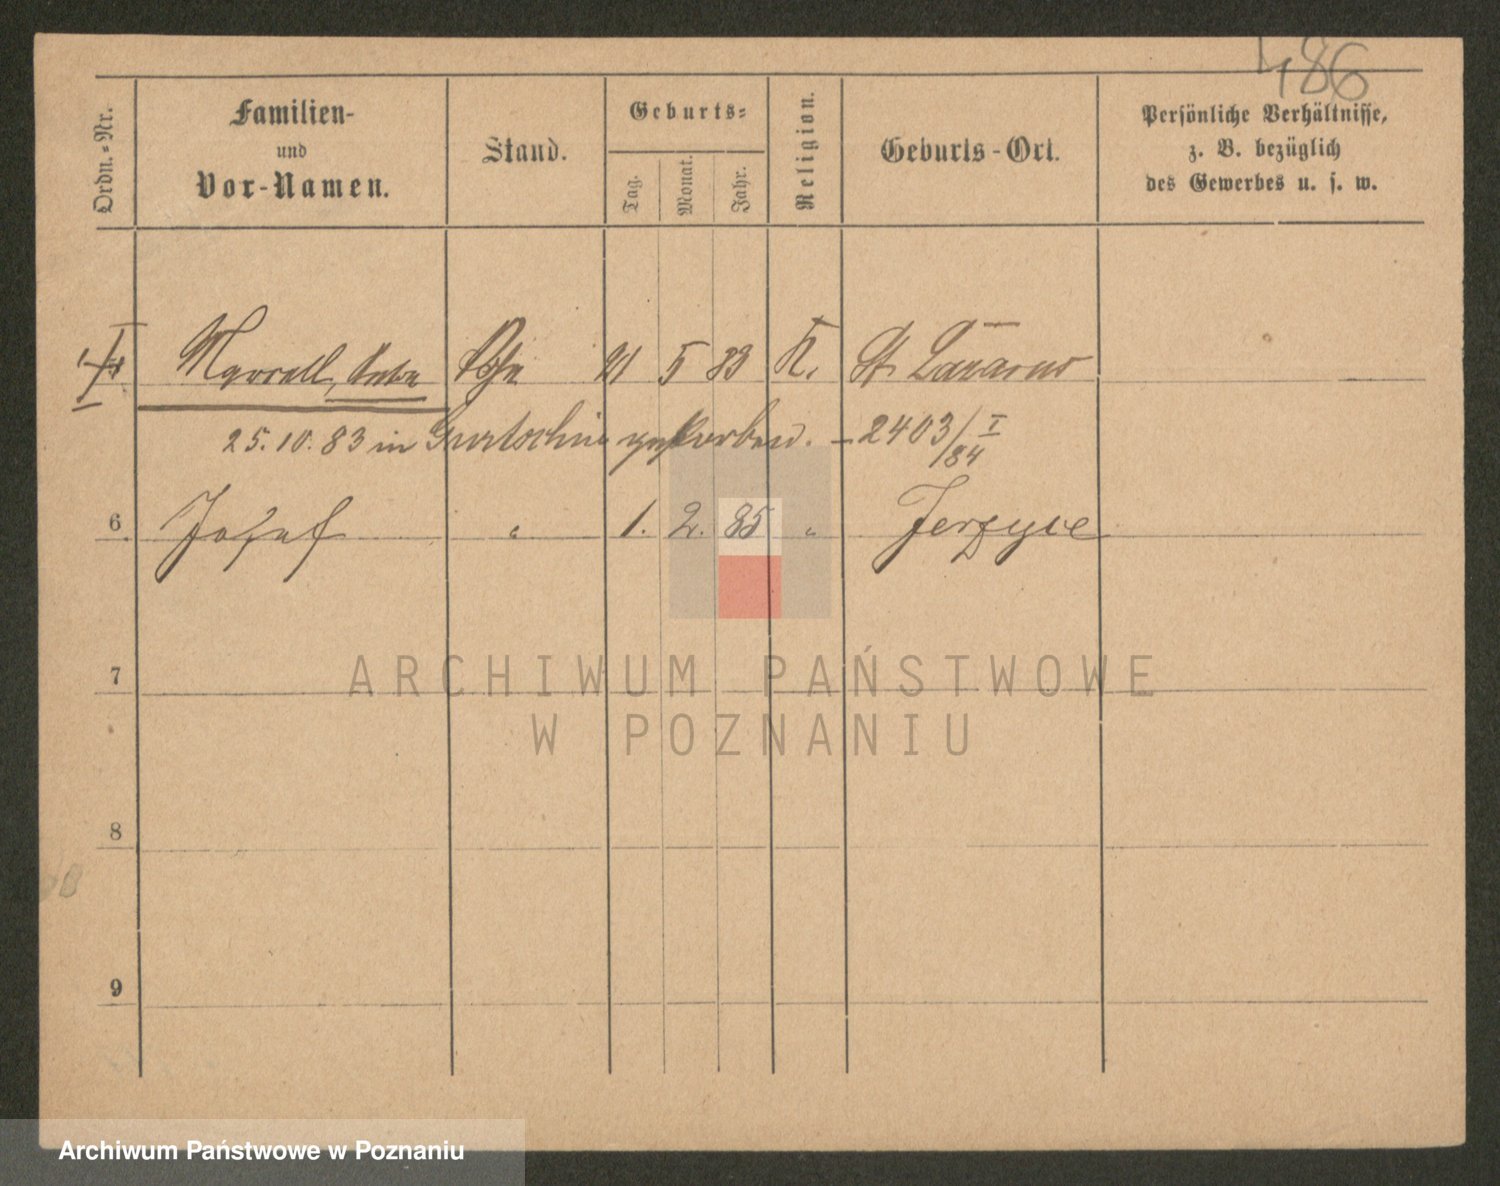 486
Ordn.-Nr.
Familien-
und
Vor-Namen.
Stand.
Geburts-
Tag.
Monat.
Jahr.
Religion.
Geburts-Ort.
Persönliche Verhältnisse,
z. B. bezüglich
des Gewerbes u. s. w.
Marcell, 5 83 K. St. Lazarus
25.10.83 in Gurtschin gestorben. - 2403/I/84
6 Josef " 1. 2. 85 " Jerzyce
7
ARCHIWUM PAŃSTWOWE
W POZNANIU
8
9
Archiwum Państwowe w Poznaniu